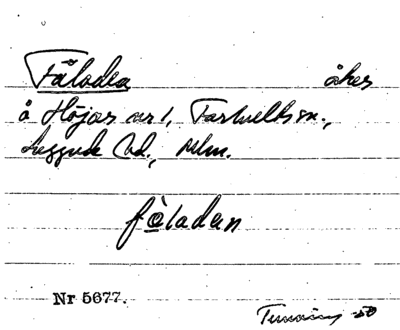 Fäladen åker
å Höjas nr 1, Farhults sn.,
Luggude hd., Mlm.
fàladen
Nr 5677.